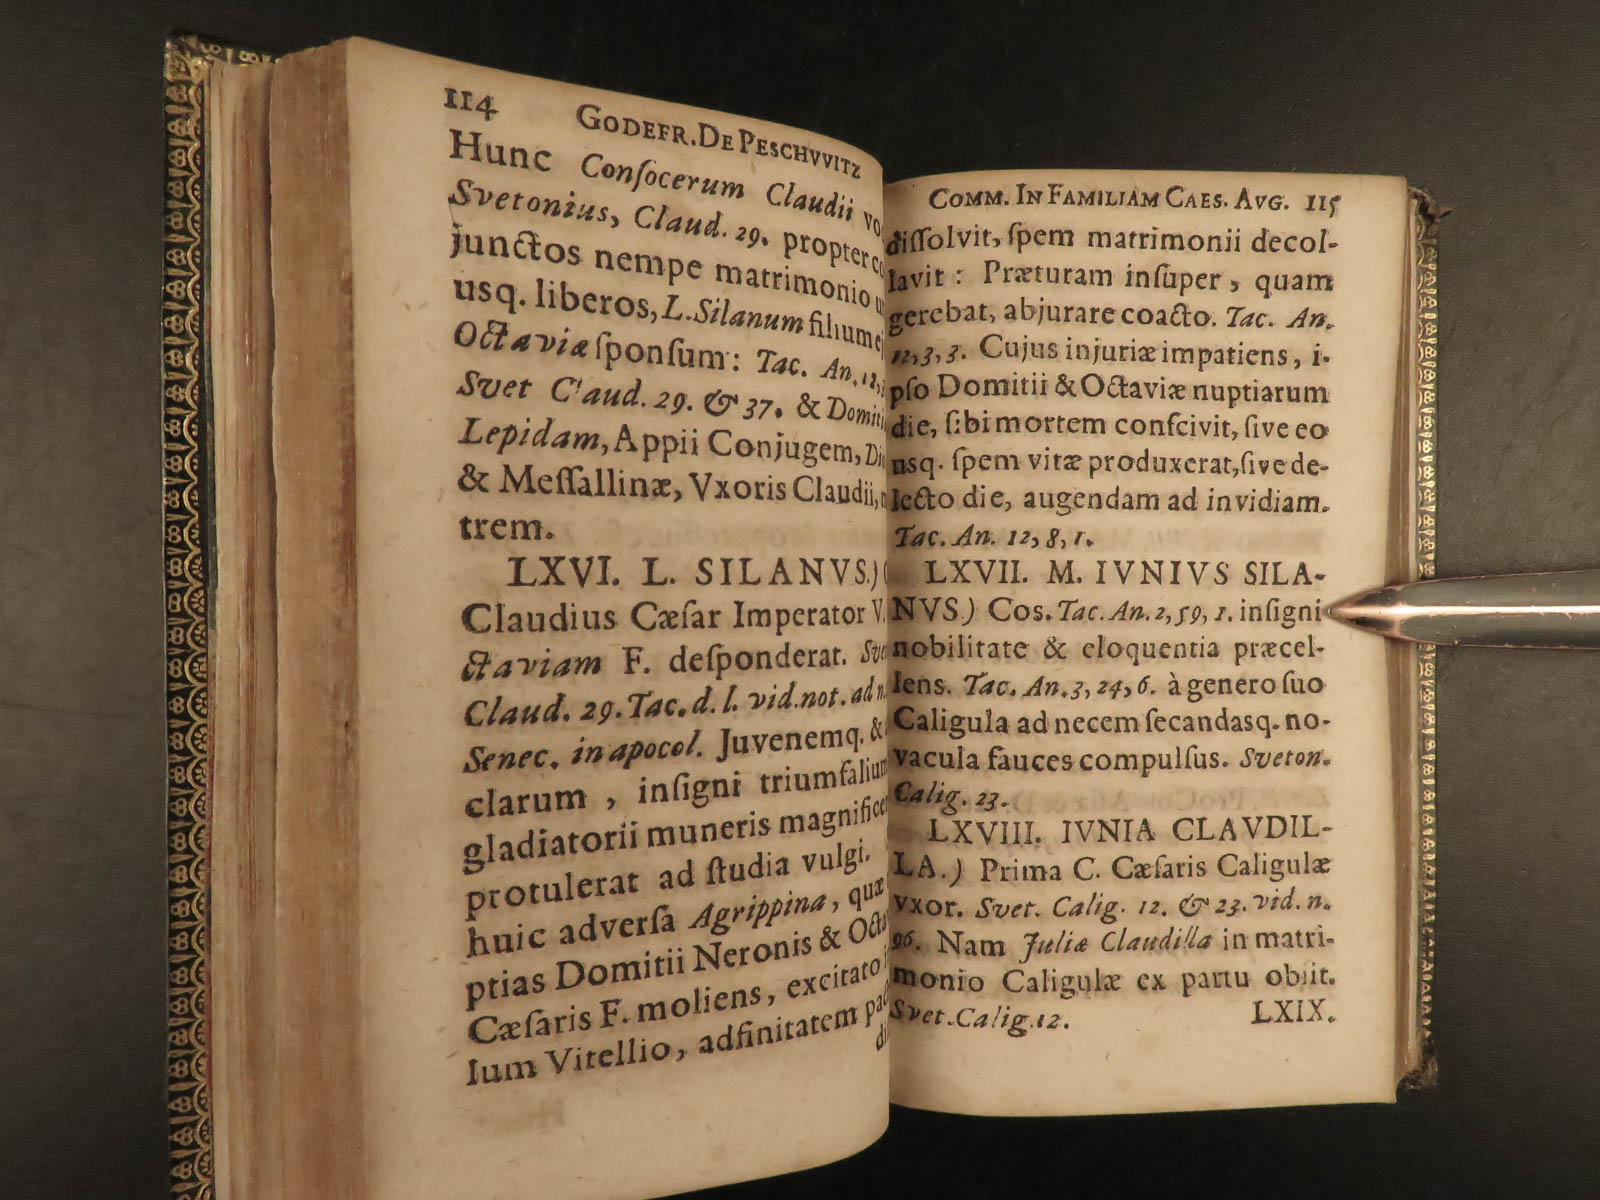 114 GODEFR. DE PESCHVVITZ
Hunc Conſocerum Claudii
Svetonius, Claud. 29. propter
junctos nempe matrimonio
usq. liberos, L. Silanum filium
Octaviæ ſponſum: Tac. An. 12,
Svet Claud. 29. & 37. & Domit
Lepidam, Appii Conjugem,
& Meſſallinæ, Vxoris Claudii,
trem.
LXVI. L. SILANVS.)
Claudius Cæſar Imperator
ctaviam F. deſponderat.
Claud. 29. Tac. d. l. vid. not. ad n.
Senec. in apocol. Juvenemq. &
clarum, inſigni triumfalium
gladiatorii muneris magnifice
protulerat ad ſtudia vulgi.
huic adverſa Agrippina, quæ
ptias Domitii Neronis & Octa
Cæſaris F. moliens, excitato
lum Vitellio, adfinitatem
COMM. IN FAMILIAM CAES. AVG. 115
diſſolvit, ſpem matrimonii decol-
lavit: Præturam inſuper, quam
gerebat, abjurare coacto. Tac. An.
12, 3, 3. Cujus injuriæ impatiens, i-
pſo Domitii & Octaviæ nuptiarum
die, ſibi mortem conſcivit, ſive eo
usq. ſpem vitæ produxerat, ſive de-
lecto die, augendam ad invidiam.
Tac. An. 12, 8, 1.
LXVII. M. IVNIVS SILA-
NVS.) Cos. Tac. An. 2, 59, 1. inſigni
nobilitate & eloquentia præcel-
lens. Tac. An. 3, 24, 6. à genero ſuo
Caligula ad necem ſecandasq. no-
vacula fauces compulſus. Sveton.
Calig. 23.
LXVIII. IVNIA CLAVDIL-
LA.) Prima C. Cæſaris Caligulæ
vxor. Svet. Calig. 12. & 23. vid. n.
96. Nam Juliæ Claudilla in matri-
monio Caligulæ ex partu obiit.
Svet. Calig. 12. LXIX.